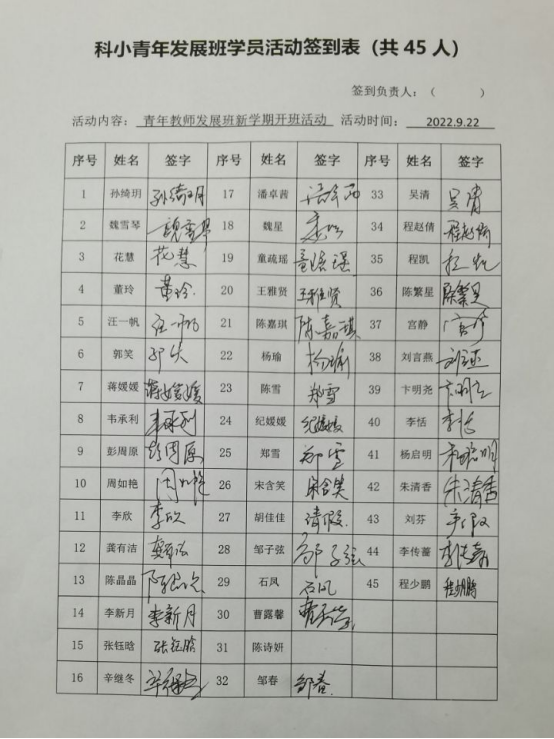 科小青年发展班学员活动签到表（共 45 人）
签到负责人：（ ）
活动内容： 青年教师发展班新学期开班活动 活动时间： 2022.9.22
序号 姓名 签字 序号 姓名 签字 序号 姓名 签字
1 孙绮玥 孙绮玥 17 潘卓茜 潘卓茜 33 吴清 吴清
2 魏雪琴 魏雪琴 18 魏星 34 程赵倩 程赵倩
3 花慧 花慧 19 童疏瑶 童疏瑶 35 程凯 程凯
4 董玲 董玲 20 王雅贤 王雅贤 36 陈繁星 陈繁星
5 汪一帆 汪一帆 21 陈嘉琪 陈嘉琪 37 宫静 宫静
6 郭笑 郭笑 22 杨瑜 杨瑜 38 刘言燕
7 蒋媛媛 蒋媛媛 23 陈雪 郑雪 39 卞明尧 卞明尧
8 韦承利 韦承利 24 纪媛媛 纪媛媛 40 李恬 李恬
9 彭周原 彭周原 25 郑雪 郑雪 41 杨启明
10 周如艳 周如艳 26 宋含笑 宋含笑 42 朱清香 朱清香
11 李欣 李欣 27 胡佳佳 请假 43 刘芬
12 龚有洁 28 邹子弦 邹子弦 44 李传蔷 李传蔷
13 陈晶晶 陈晶晶 29 石凤 石凤 45 程少鹏 程少鹏
14 李新月 李新月 30 曹露馨
15 张钰晗 张钰晗 31 陈诗妍
16 辛继冬 辛继冬 32 邹春 邹春